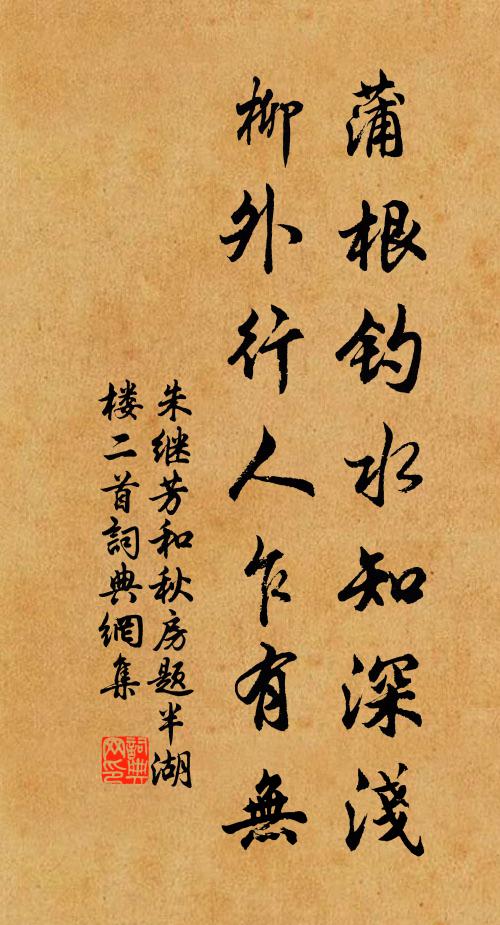 蒲根钓水知深淺
柳外行人乍有無
朱继芳和秋房题半湖
楼二首詞典網集
詞典
网印